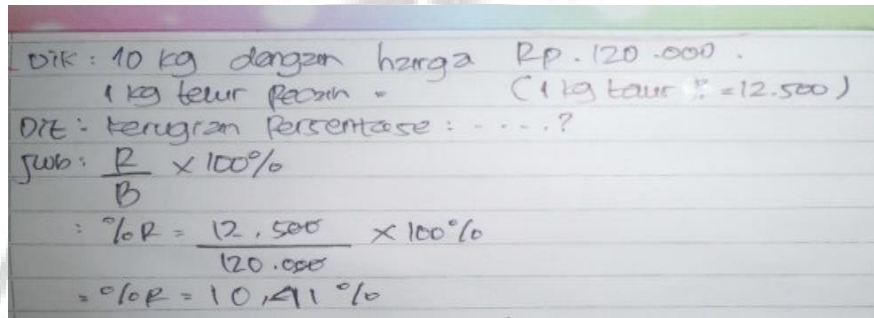 Dik : 10 kg dengan harga Rp. 120.000.
1 kg telur pecah = (1 kg telur = 12.500)
Dit : kerugian Persentase : . . . . ?
Jwb : R/B × 100%
: %R = 12.500/120.000 × 100%
= %R = 10,41 %